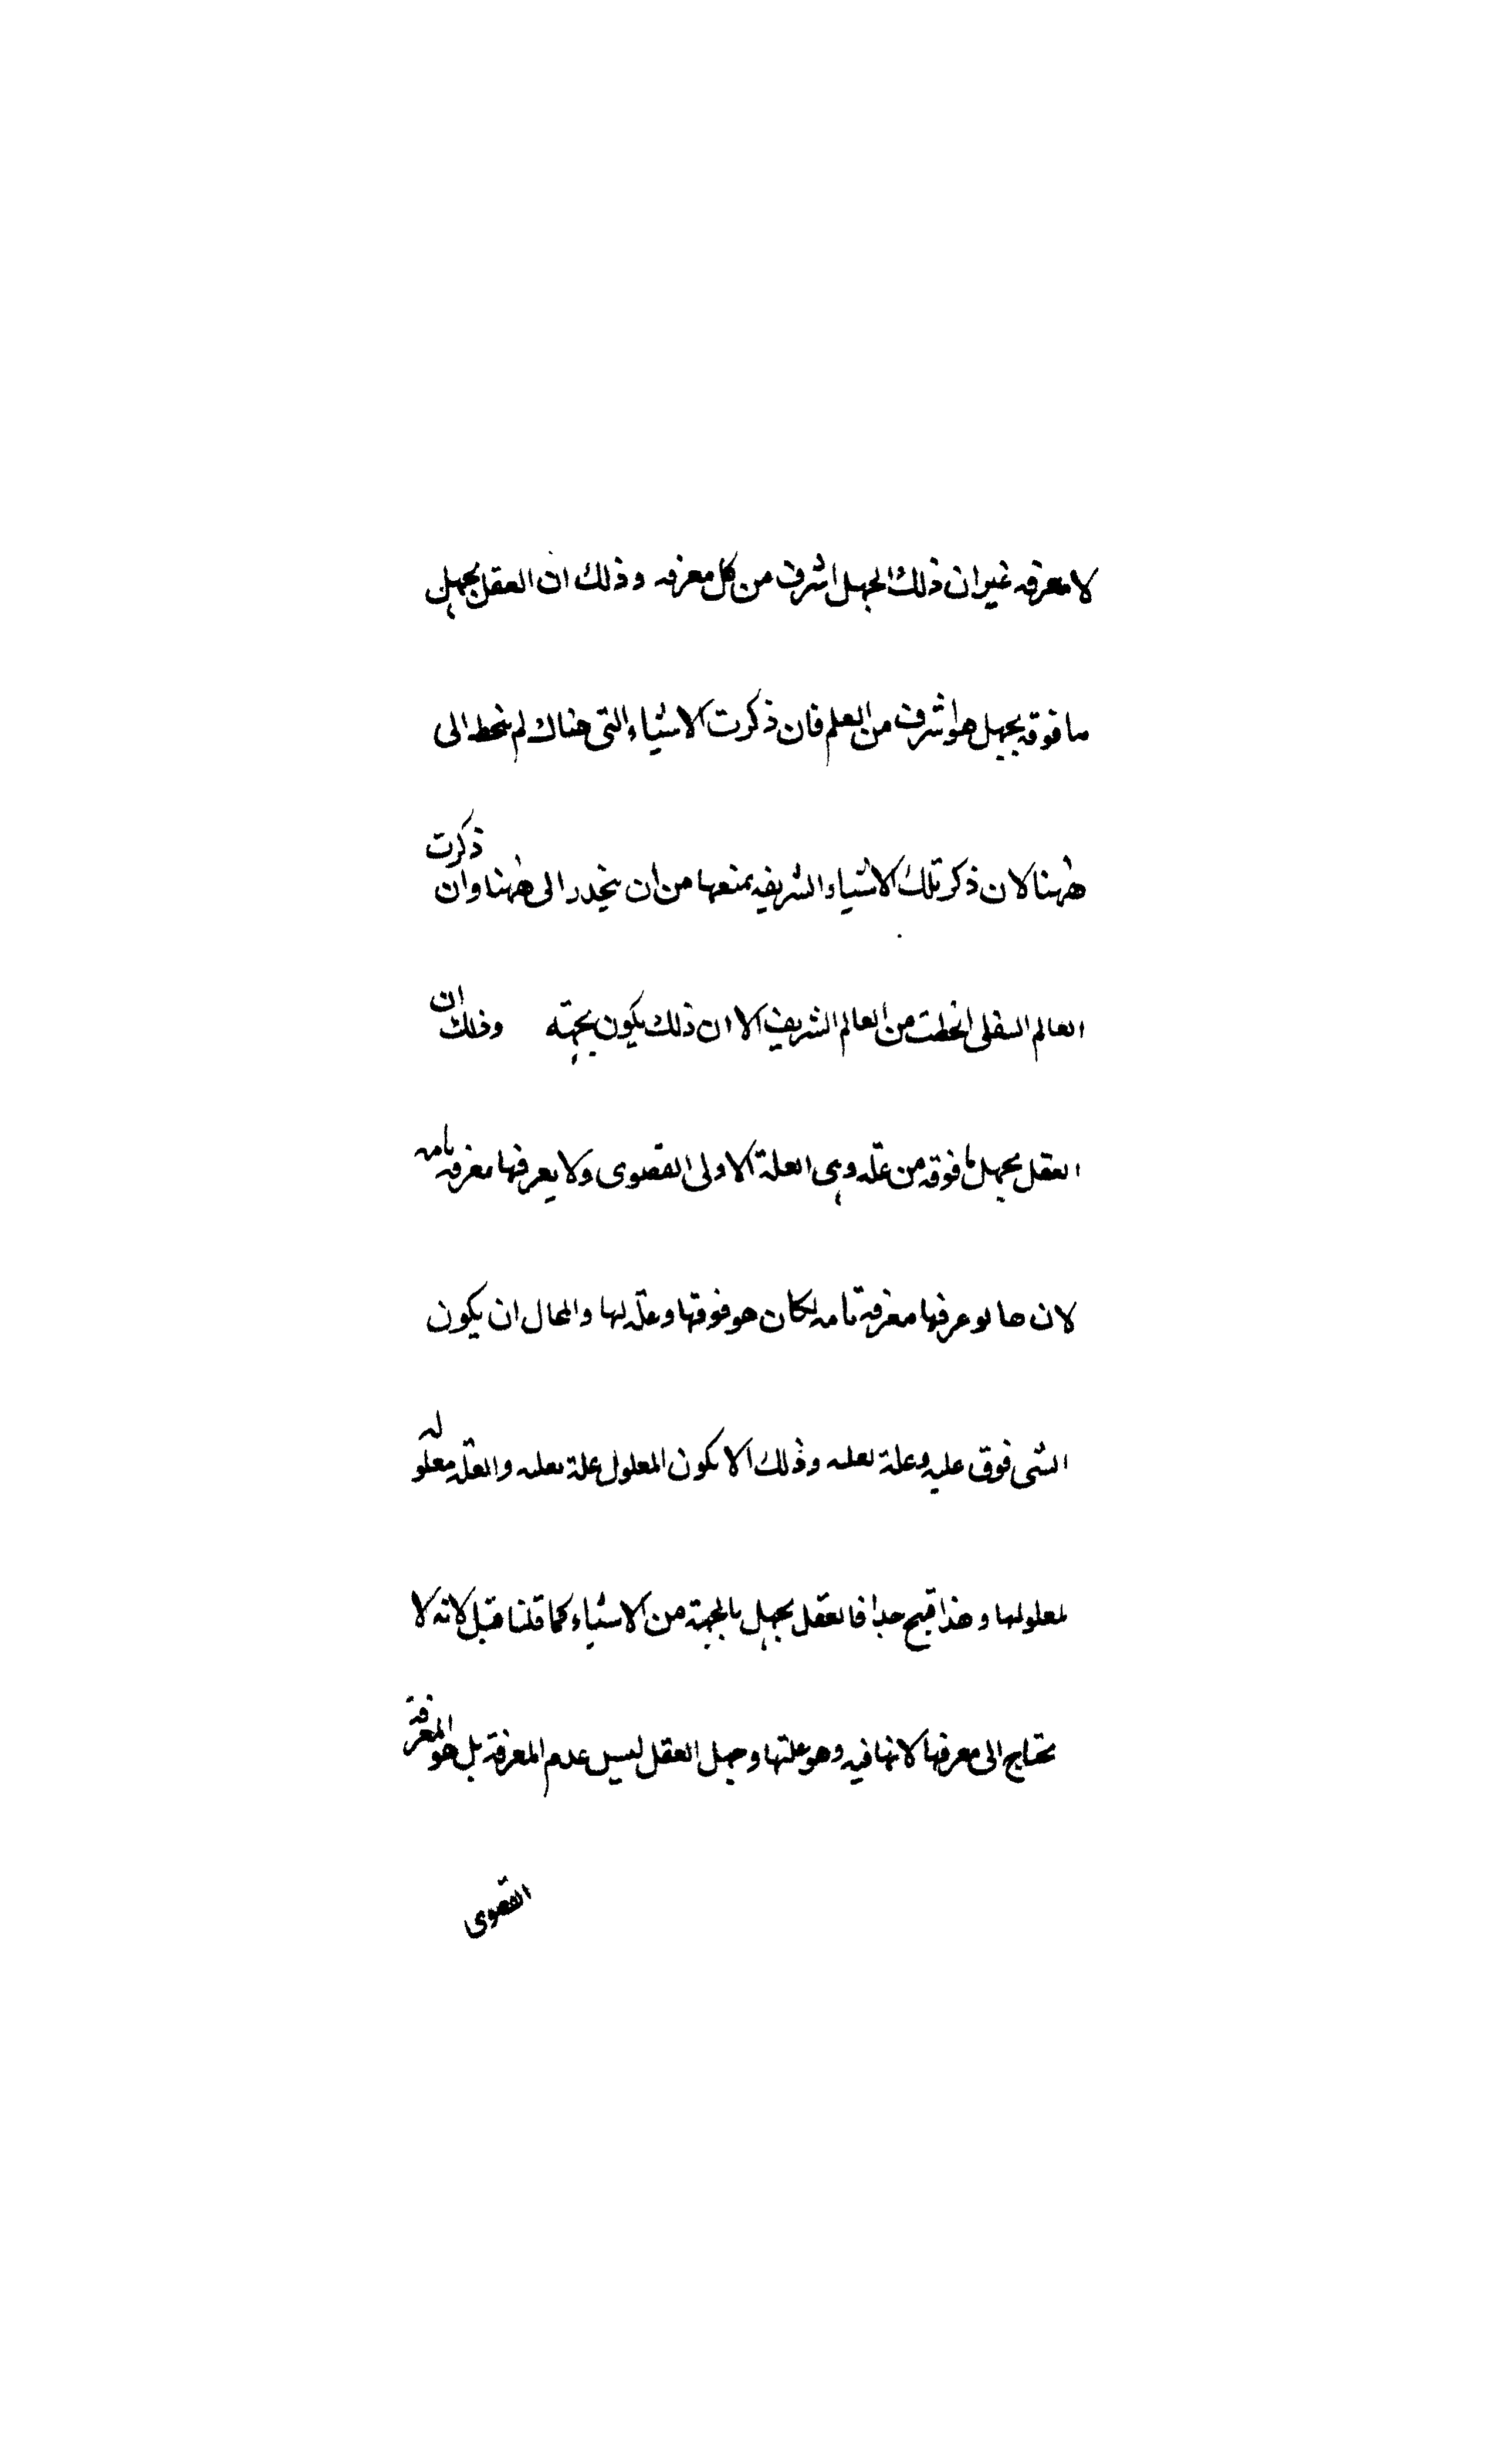 لا معرفه غير ان ذلك الجهل اشرف من كل معرفه وذلك ان العقل يجهل
ما فوقه بجهل هو اشرف من العلم فان ذكرت الاشياء التى هناك لم ينحط الى
ههنا لان ذكر تلك الاشياء الشريفه يمنعها من ان ينحدر الى ههنا وان ذكرت
العالم السفلى انحطت من العالم الشريف الا ان ذلك يكون بجهته وذلك ان
العقل يجهل ما فوقه من علّه وهى العلة الاولى القصوى ولا يعرفها معرفه تامه
لان ها لو عرفها معرفة تامه لكان هو فوقها وعلّه لها والمحال ان يكون
الشى فوق عليه وعلة لعله وذلك الا يكون المعلول علة لعله والعلّه معلوله
لمعلولها وهذا قبيح جدا فالعقل يجهل بالجهة من الاشياء كما قلنا قبل لانه لا
يحتاج الى معرفها لانها فيه وهو علتها وجهل العقل ليس عدم المعرفة بل هو المعرفة
القصوى